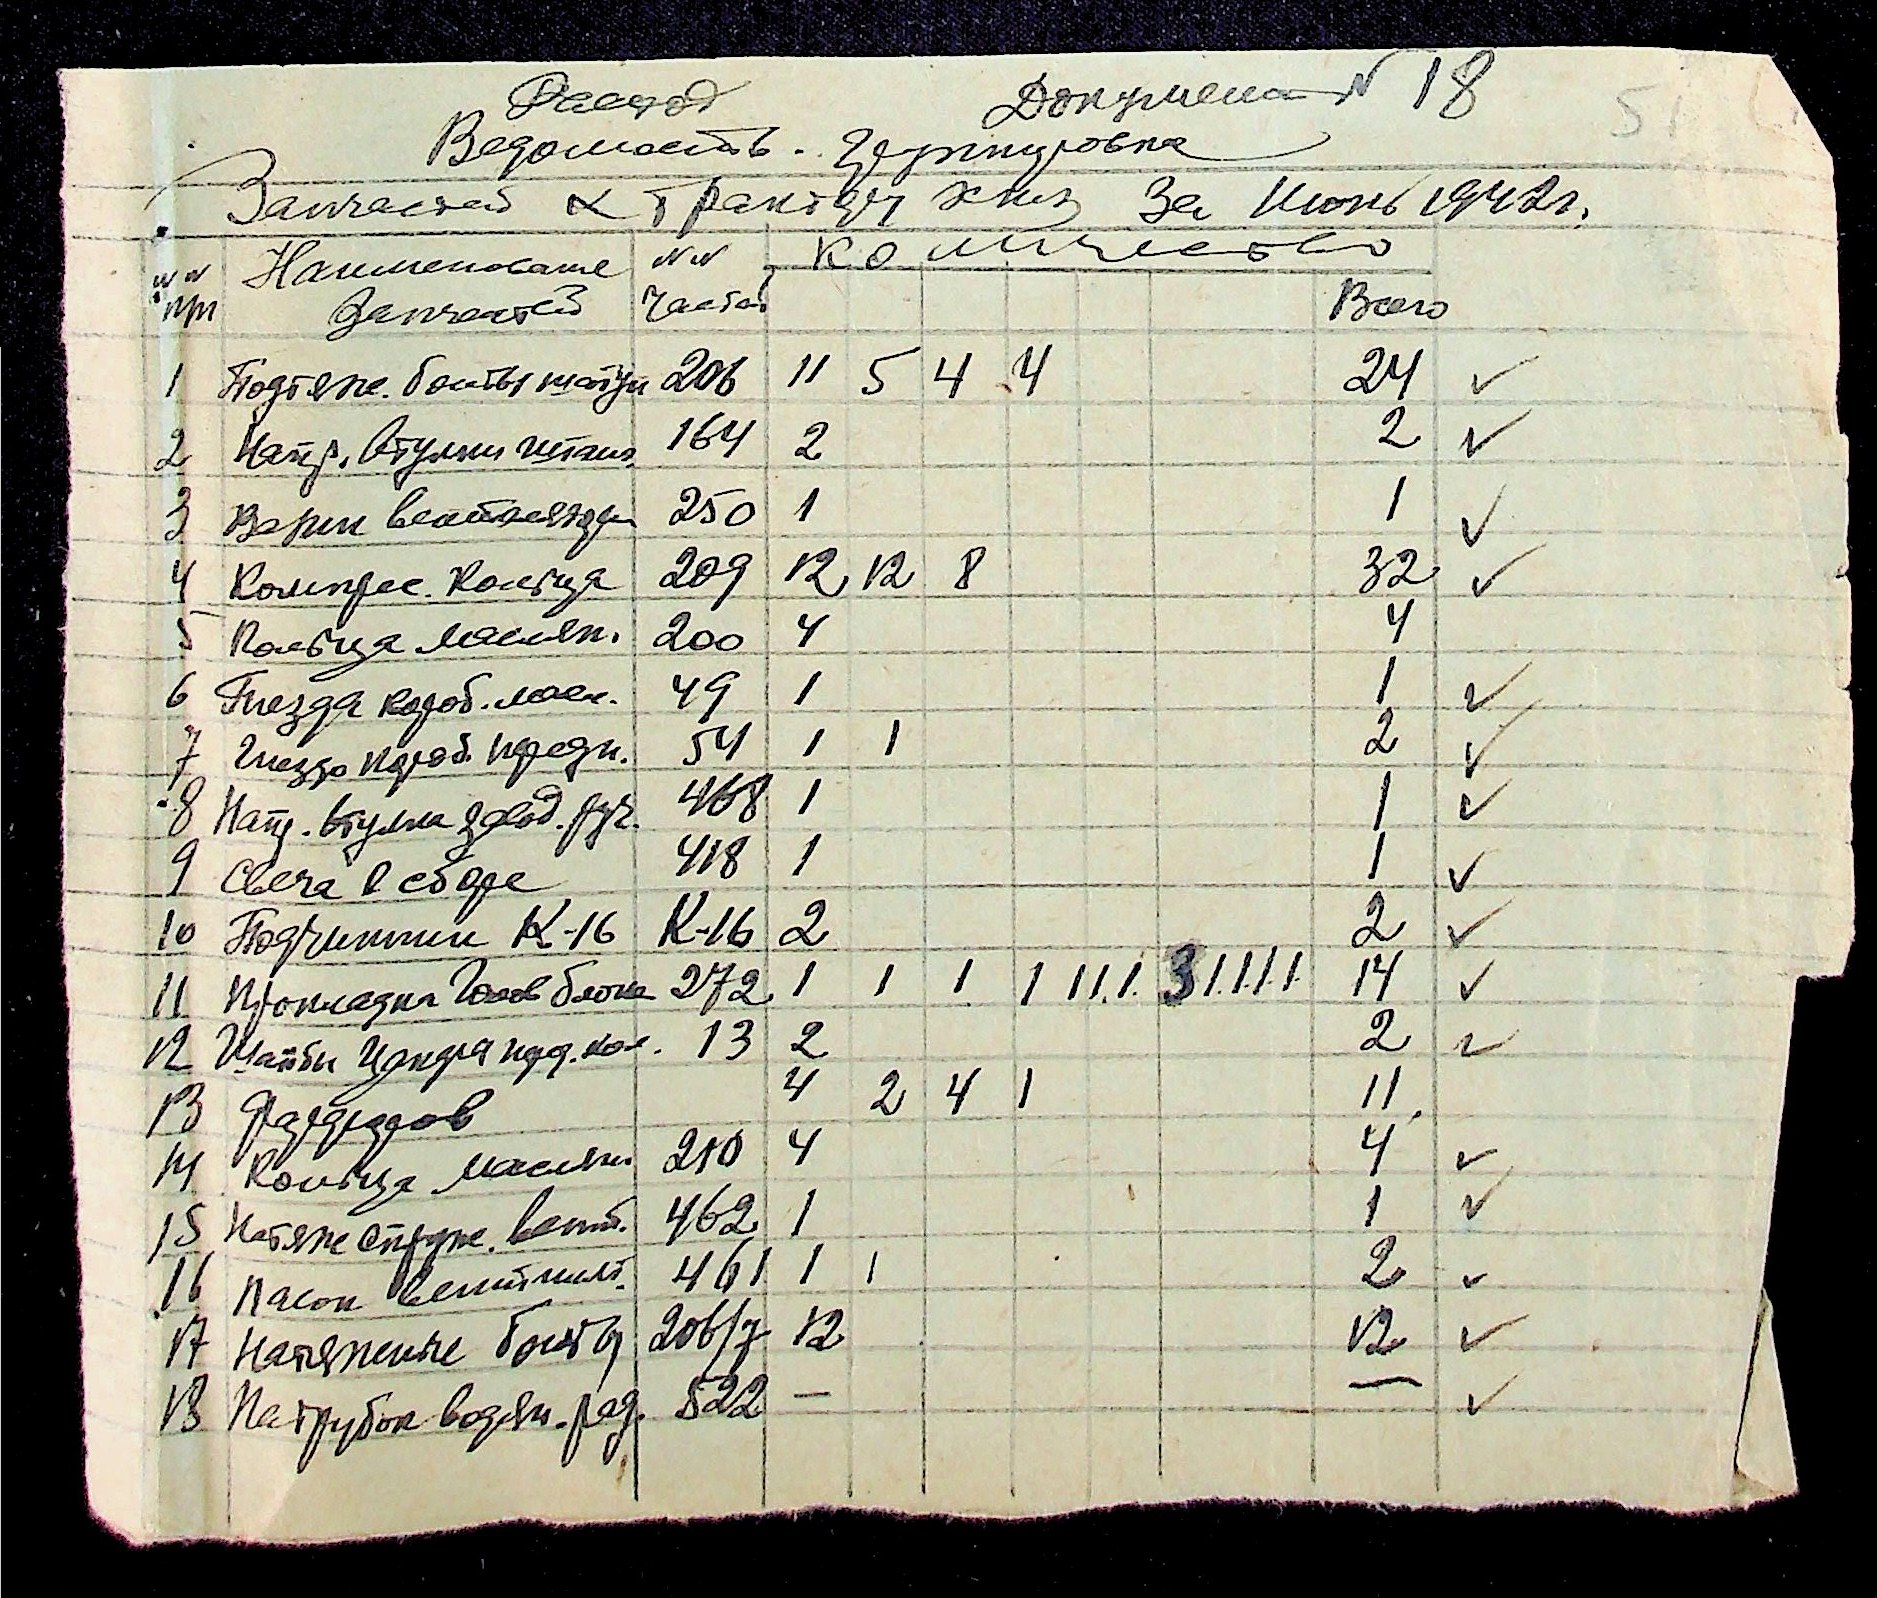 Расход Документ № 18 51
Ведомость - Группировка
Запчастей к трактору ХТЗ За Июнь 1942 г.
№№ Наименование №№ Количество
п/п Запчастей частей Всего
1 Подтяж. болты шатун 206 11 5 4 4 24 ✓
2 Напр. втулки штанг. 164 2 2 ✓
3 Верт вентилятора 250 1 1 ✓
4 Компрес. Кольца 209 12 12 8 32 ✓
5 Кольца маслян. 200 4 4
6 Гнезда короб. масл. 49 1 1 ✓
7 Гнездо короб. передн. 54 1 1 2 ✓
8 Напр. втулка завод. руч. 468 1 1 ✓
9 Свеча в сборе 418 1 1 ✓
10 Подчипники К-16 К-16 2 2 ✓
11 Прокладка Голов блока 272 1 1 1 1 1 1. 1. 3 1. 1. 1. 1. 14 ✓
12 Шайбы пер. кол. 13 2 2 ✓
13 4 2 4 1 11.
14 Кольца маслян. 210 4 4 ✓
15 Натяж спруж. вент. 462 1 1 ✓
16 Пасок вентилят. 461 1 1 2 ✓
17 Натяжение болты 206/7 12 12 ✓
18 Патрубок водян. рад. 522 — — ✓